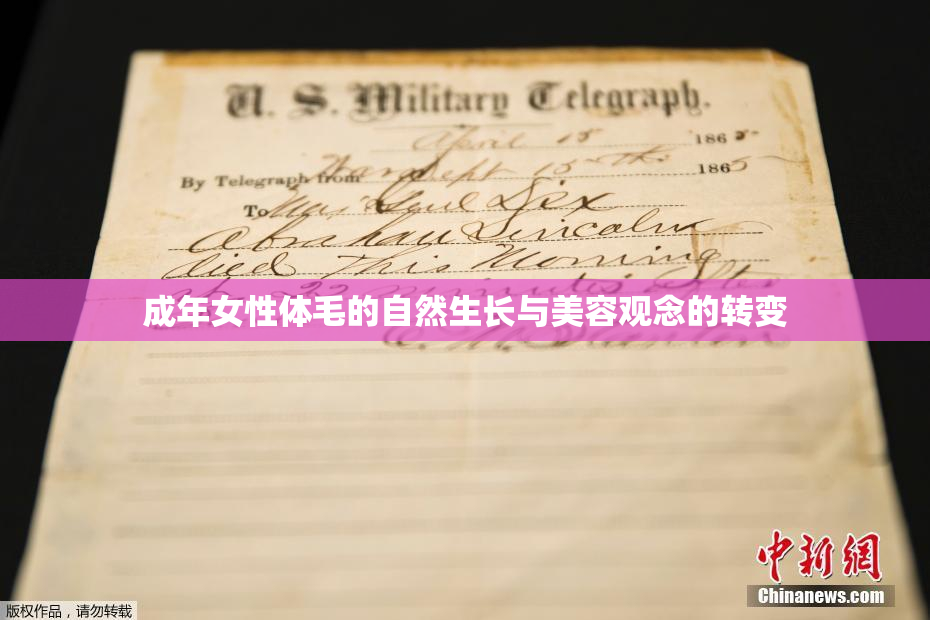 U. S. Military Telegraph.
April 15 1865
By Telegraph from War Dept 15th 1865
To Maj Genl Dix
Abraham Lincoln
died This Morning
at 22 minutes after
成年女性体毛的自然生长与美容观念的转变
E. M. Stanton
中新网
Chinanews.com
版权作品，请勿转载